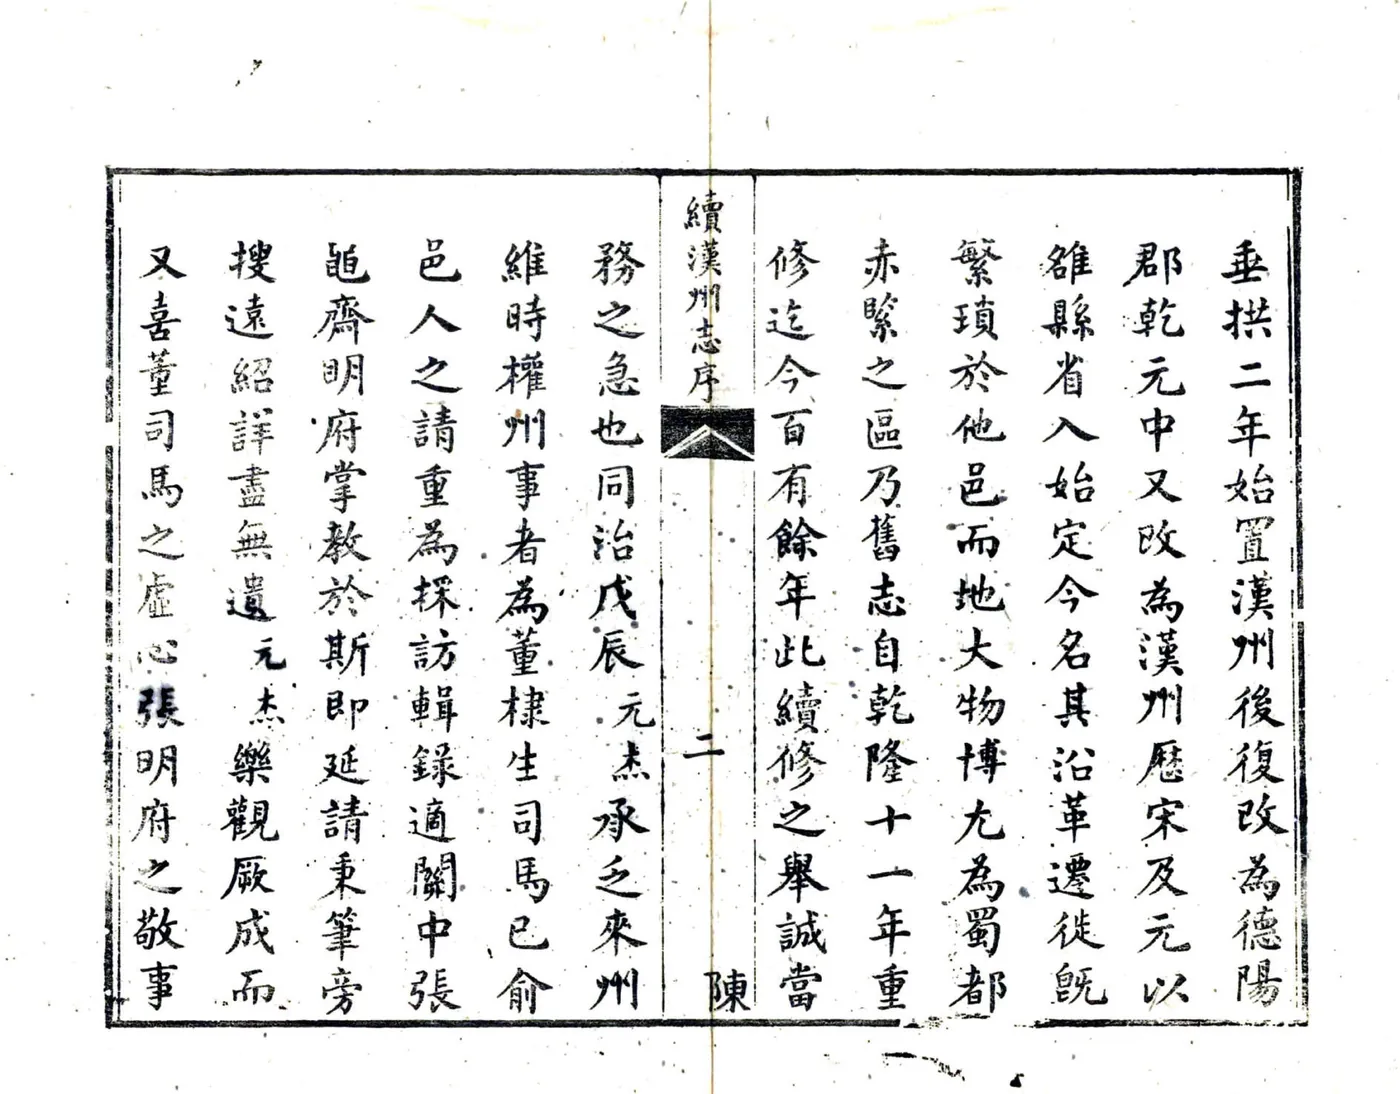 垂拱二年始置漢州後復改為德陽
郡乾元中又改為漢州歷宋及元以
雒縣省入始定今名其沿革遷徙旣
繁瑣於他邑而地大物博尤為蜀都
赤緊之區乃舊志自乾隆十一年重
修迄今百有餘年此續修之舉誠當
續漢州志序
二
陳
務之急也同治戊辰元杰承乏來州
維時權州事者為董棣生司馬已俞
邑人之請重為採訪輯錄適關中張
齋明府掌教於斯即延請秉筆旁
搜遠紹詳盡無遺元杰樂觀厥成而
又喜董司馬之虛心張明府之敬事